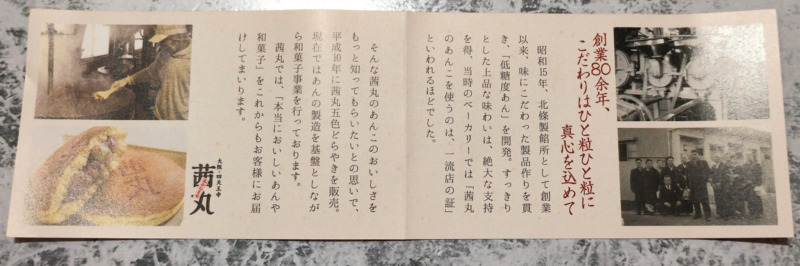 創業80余年、
こだわりはひと粒ひと粒に
真心を込めて
昭和15年、北條製餡所として創業
以来、味にこだわった製品作りを貫
き、「低糖度あん」を開発。すっきり
とした上品な味わいは、絶大な支持
を得、当時のベーカリーでは「茜丸
のあんこを使うのは、一流店の証」
といわれるほどでした。
そんな茜丸のあんこのおいしさを
もっと知ってもらいたいとの思いで、
平成10年に茜丸五色どらやきを販売。
現在ではあんの製造を基盤としなが
ら和菓子事業を行っております。
茜丸では、「本当においしいあんや
和菓子」をこれからもお客様にお届
けしてまいります。
大阪・四天王寺
茜丸